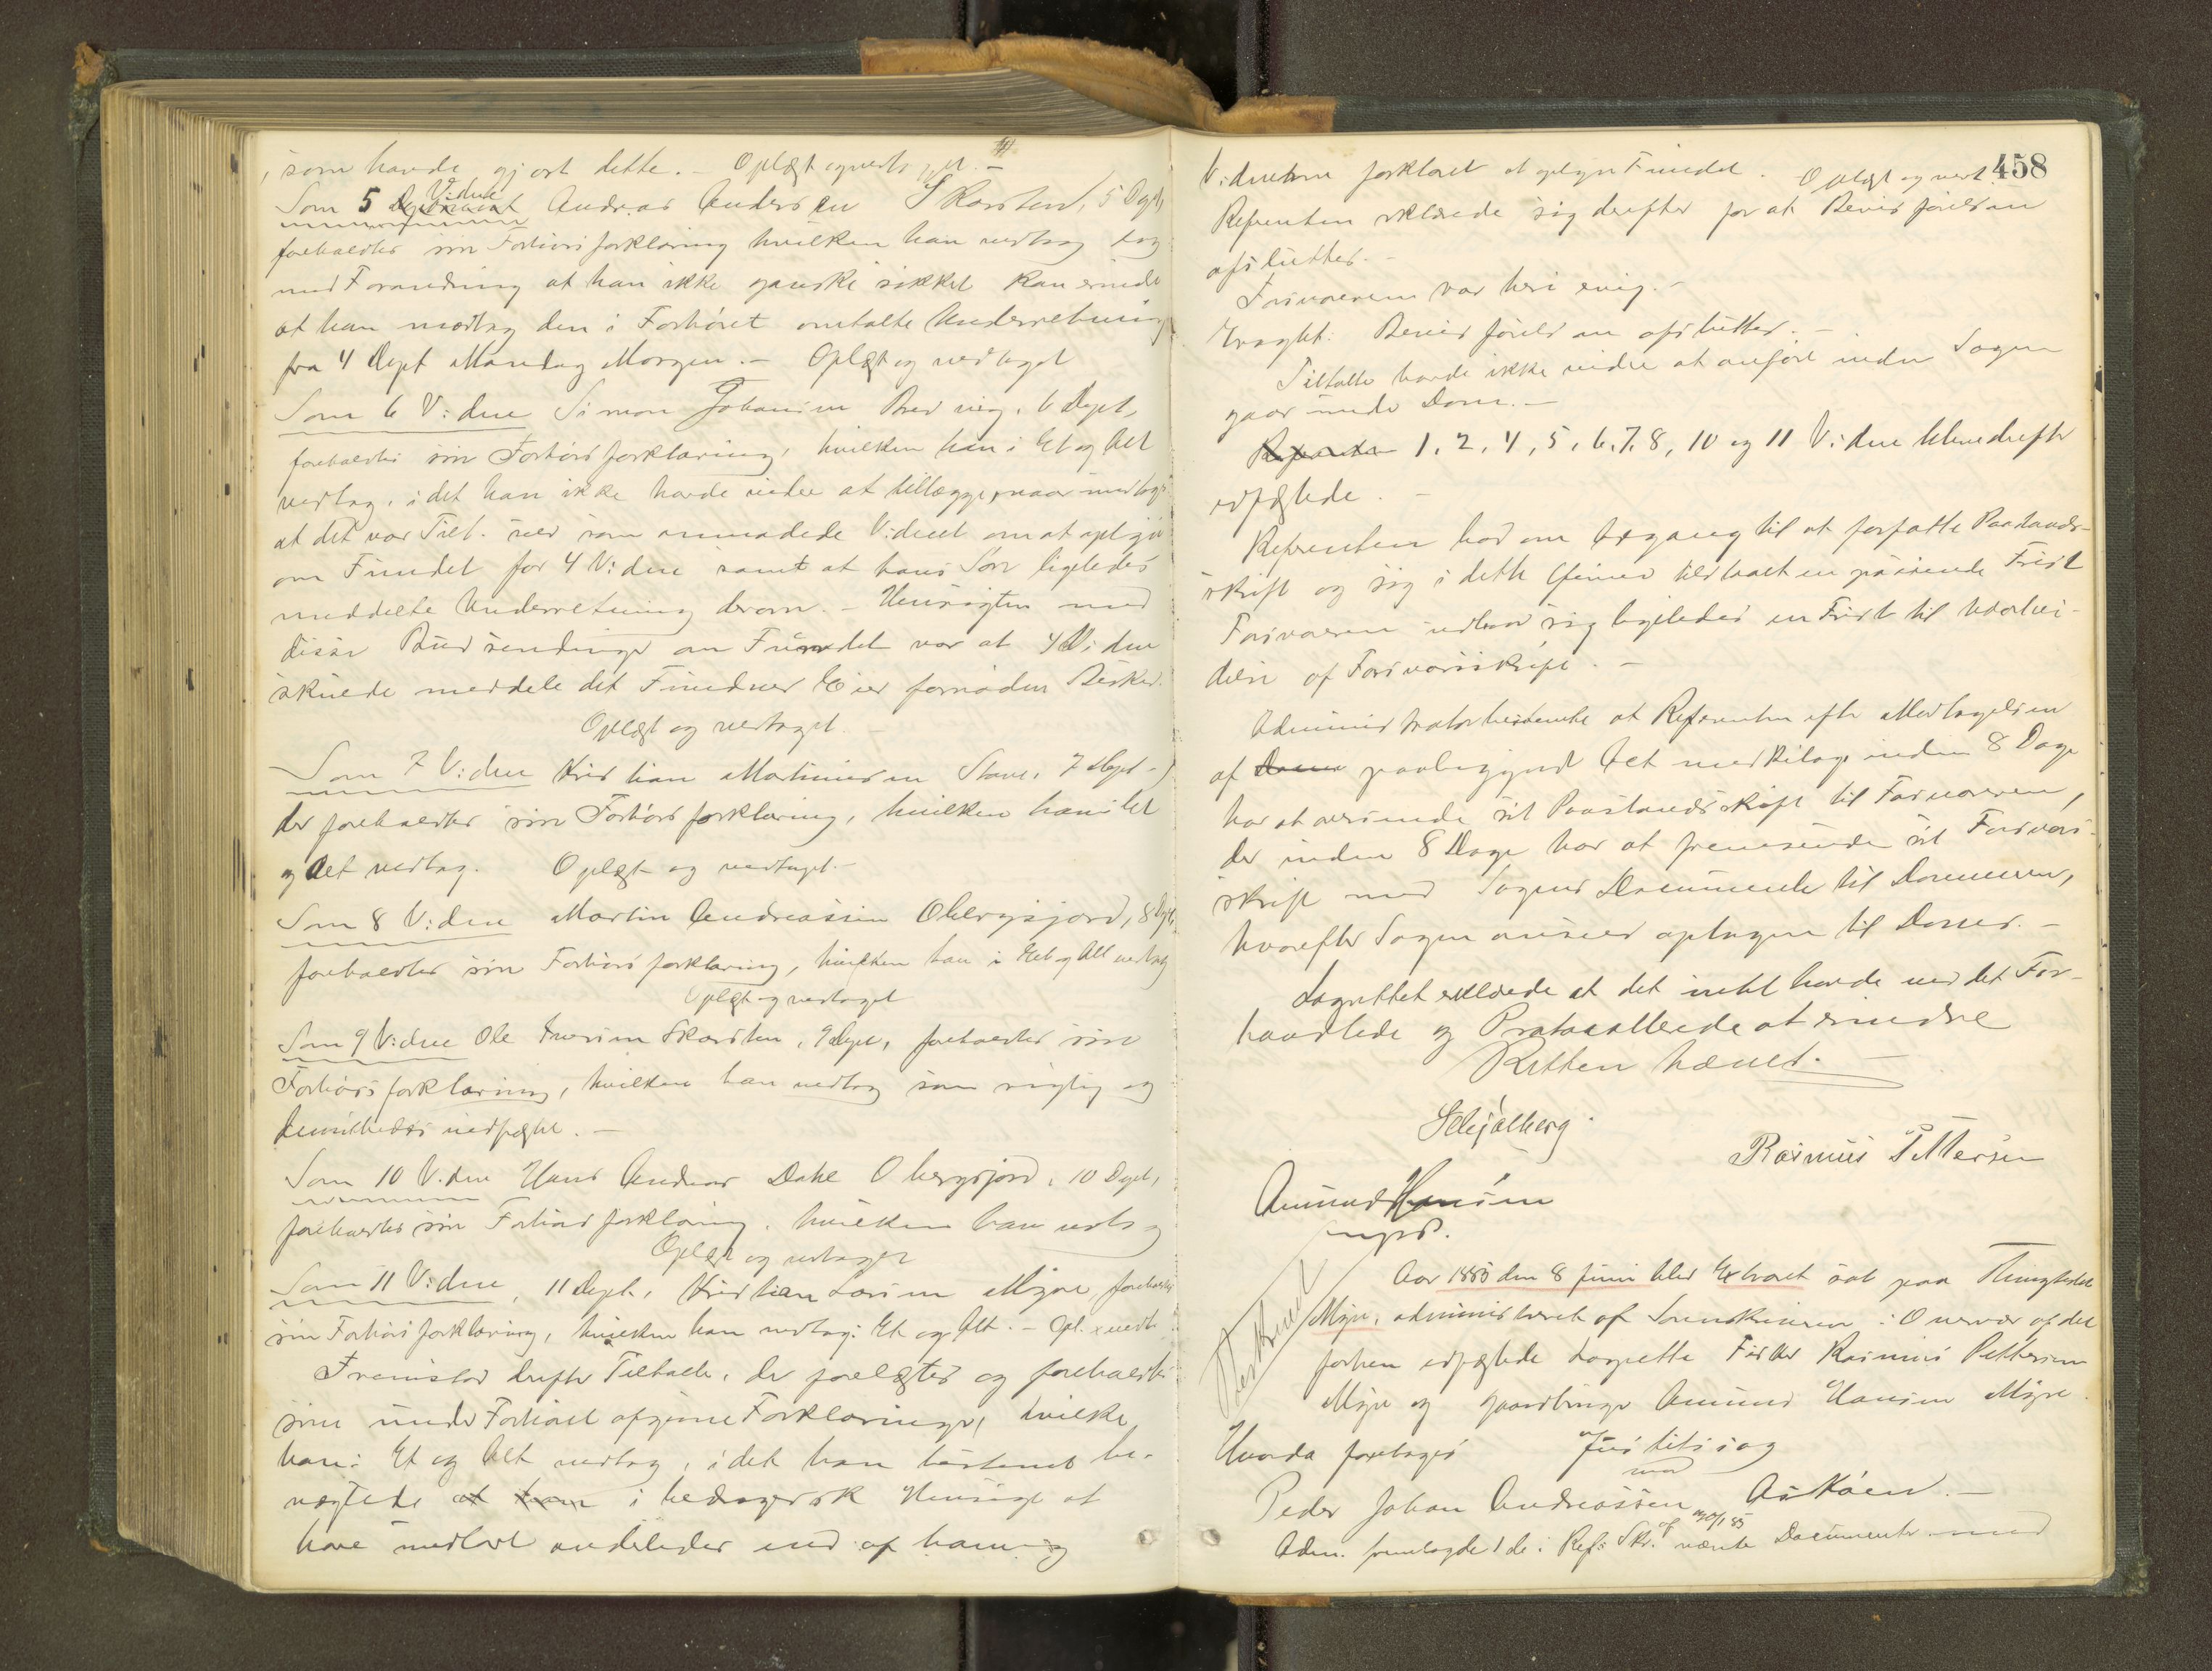 , som havde gjort dette. – Oplæst og vedtaget. –
Som 5 Vidne Andreas Andersen Skarsten, 5 Dept,
foreholdtes sin Forhørsforklaring hvilken han vedtog dog
med Forandring at han ikke ganske sikkert kan erindre
at han modtog den i Forhøret omtalte Underretning
fra 4 Dept Mandag Morgen. – Oplæst og vedtaget
Som 6 Vidne Simon Johansen Bredvig, 6 Dept,
foreholdtes sin Forhørsforklaring, hvilken han i Et og Alt
vedtog, idet han ikke havde videre at tillægge, naar undtages
at det var Tilt. selv som anmodede Vidnet om at oplyse
om Fundet for 4 Vidne samt at hans Søn ligeledes
meddelte Underretning derom. – Hensigten med
disse Budsendinger om Fundet var at 4 Vidne
skulde meddele det Fundnes Eier fornøden Besked.
Oplæst og vedtaget. –
Som 7 Vidne Kristian Martinussen Stave, 7 Dept –
der foreholdtes sin Forhørsforklaring, hvilken han i Et
og Alt vedtog. Oplæst og vedtaget. –
Som 8 Vidne Martin Andreassen Obergsjord, 8 Dept,
foreholdtes sin Forhørsforklaring, hvilken han i Et og Alt vedtog
Oplæst og vedtaget
Som 9 Vidne Ole Iversen Skarsten, 9 Dept, foreholdtes sin
Forhørsforklaring, hvilken han vedtog som rigtig og
denuthedes vedfæstet. –
Som 10 Vidne Hans Andreas Dahl Obergsjord, 10 Dept,
foreholdtes sin Forhørsforklaring, hvilken han vedtog
Oplæst og vedtaget
Som 11 Vidne, 11 Dept, Kristian Larsen Myre, foreholdtes
sin Forhørsforklaring, hvilken han vedtog i Et og Alt. – Opl. & vedt.
Fremstod derefter Tiltalte, der forelæstes og foreholdtes
sine under Forhøret afgivne Forklaringer, hvilke
han i Et og Alt vedtog, idet han bestemt be-
nægtede at han i bedragersk Hensigt at
have medført anderledes end af ham og
458
Vidnerne forklaret at oplyse Fundet. Oplæst og vedt.
Referenten erklærede sig derefter for at Bevisførelsen
afsluttes. –
Forsvareren var heri enig. –
Eragtet: Bevisførelsen afsluttes. –
Tiltalte havde ikke videre at anføre inden Sagen
gaar under Dom. –
Referenten 1, 2, 4, 5, 6, 7, 8, 10 og 11 Vidne blev derefter
edfæstede. –
Referenten bad om Adgang til at forfatte Paastands-
skrift og sig i dette Øiemed tilstaaet en passende Frist
Forsvareren udbad sig ligeledes en Frist til Udarbei-
delse af Forsvarsskrift. –
Administrator bestemte at Referenten efter Modtagelsen
af Domme paabegyndt Act med Bilag inden 8 Dage
har at oversende sit Paastandsskrift til Forsvareren,
der inden 8 Dage har at fremsende sit Forsvars-
skrift med Sagens Documenter til Dommeren,
hvorefter Sagen ansees optagen til Doms. –
Lagrettet erklærede at det intet havde ved det For-
handlede og Protocollerede at erindre
Retten hævet. –
Schjølberg.
Rasmus Pettersen
Amund Hansen
mpp.
Aar 1885 den 8 Juni blev Extraret sat paa Thingstedet
Myre, administreret af Sorenskriveren i Overvær af det
forhen edfæstede Lagrette Fisker Rasmus Pettersen
Myre og Gaardbruger Amund Hansen Myre.
Hvorda foretoges Justitssag
mod
Peder Johan Andreassen Askøen. –
Adm. fremlagde 1 de i Ref: Skr. af 20/1 85 nævnte Documenter med